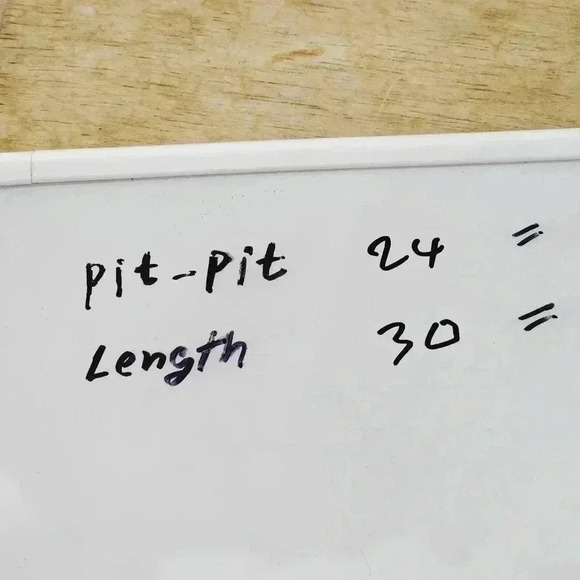 Pit-Pit 24 =
Length 30 =